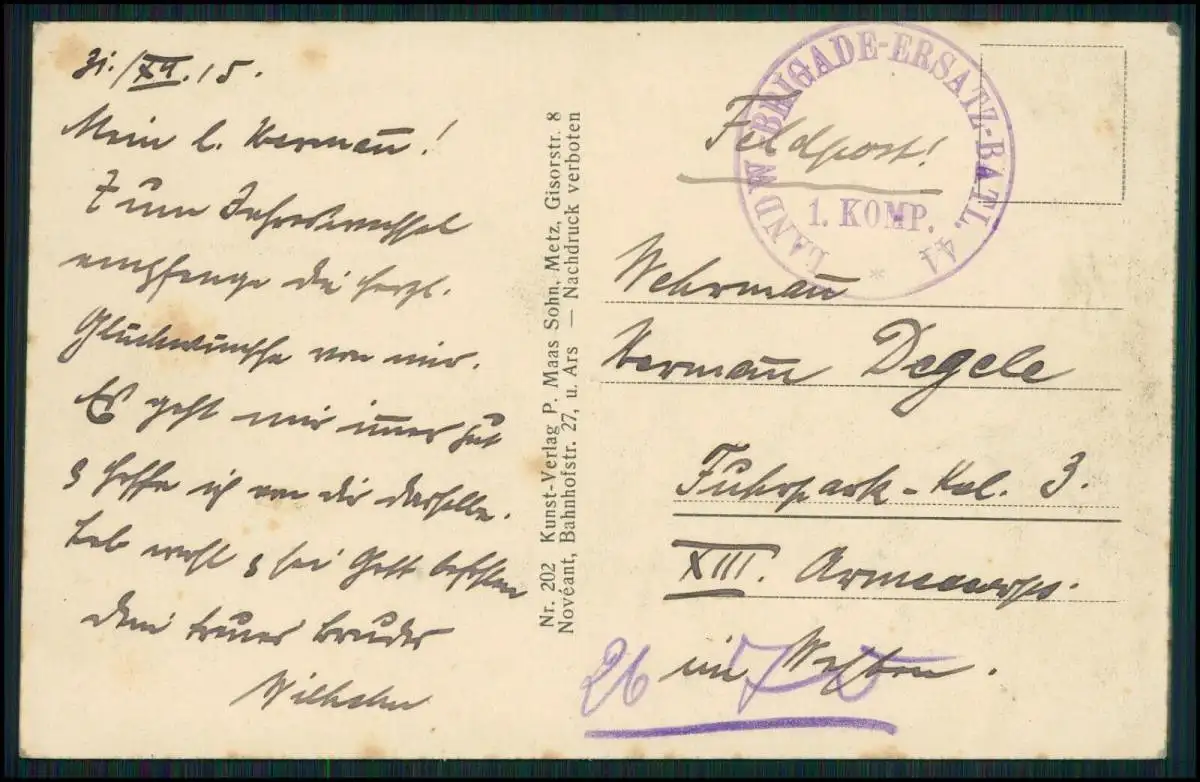 31./XII.15.
Mein l. Hermann!
Zum Jahreswechsel
empfange die herzl.
Glückwünsche von mir.
Es geht mir immer gut
& hoffe ich von dir dasselbe.
Leb wohl & sei Gott befohlen
dein treuer Bruder
Wilhelm
Nr. 202 Kunst-Verlag P. Maas Sohn, Metz, Gisorstr. 8
Novéant, Bahnhofstr. 27, u. Ars — Nachdruck verboten
LANDW.-BRIGADE-ERSATZ-BATL. 41
1. KOMP.
Feldpost!
Wehrmann
Hermann Degele
Fuhrpark-Kol. 3.
XIII. Armeecorps.
im Westen.
26